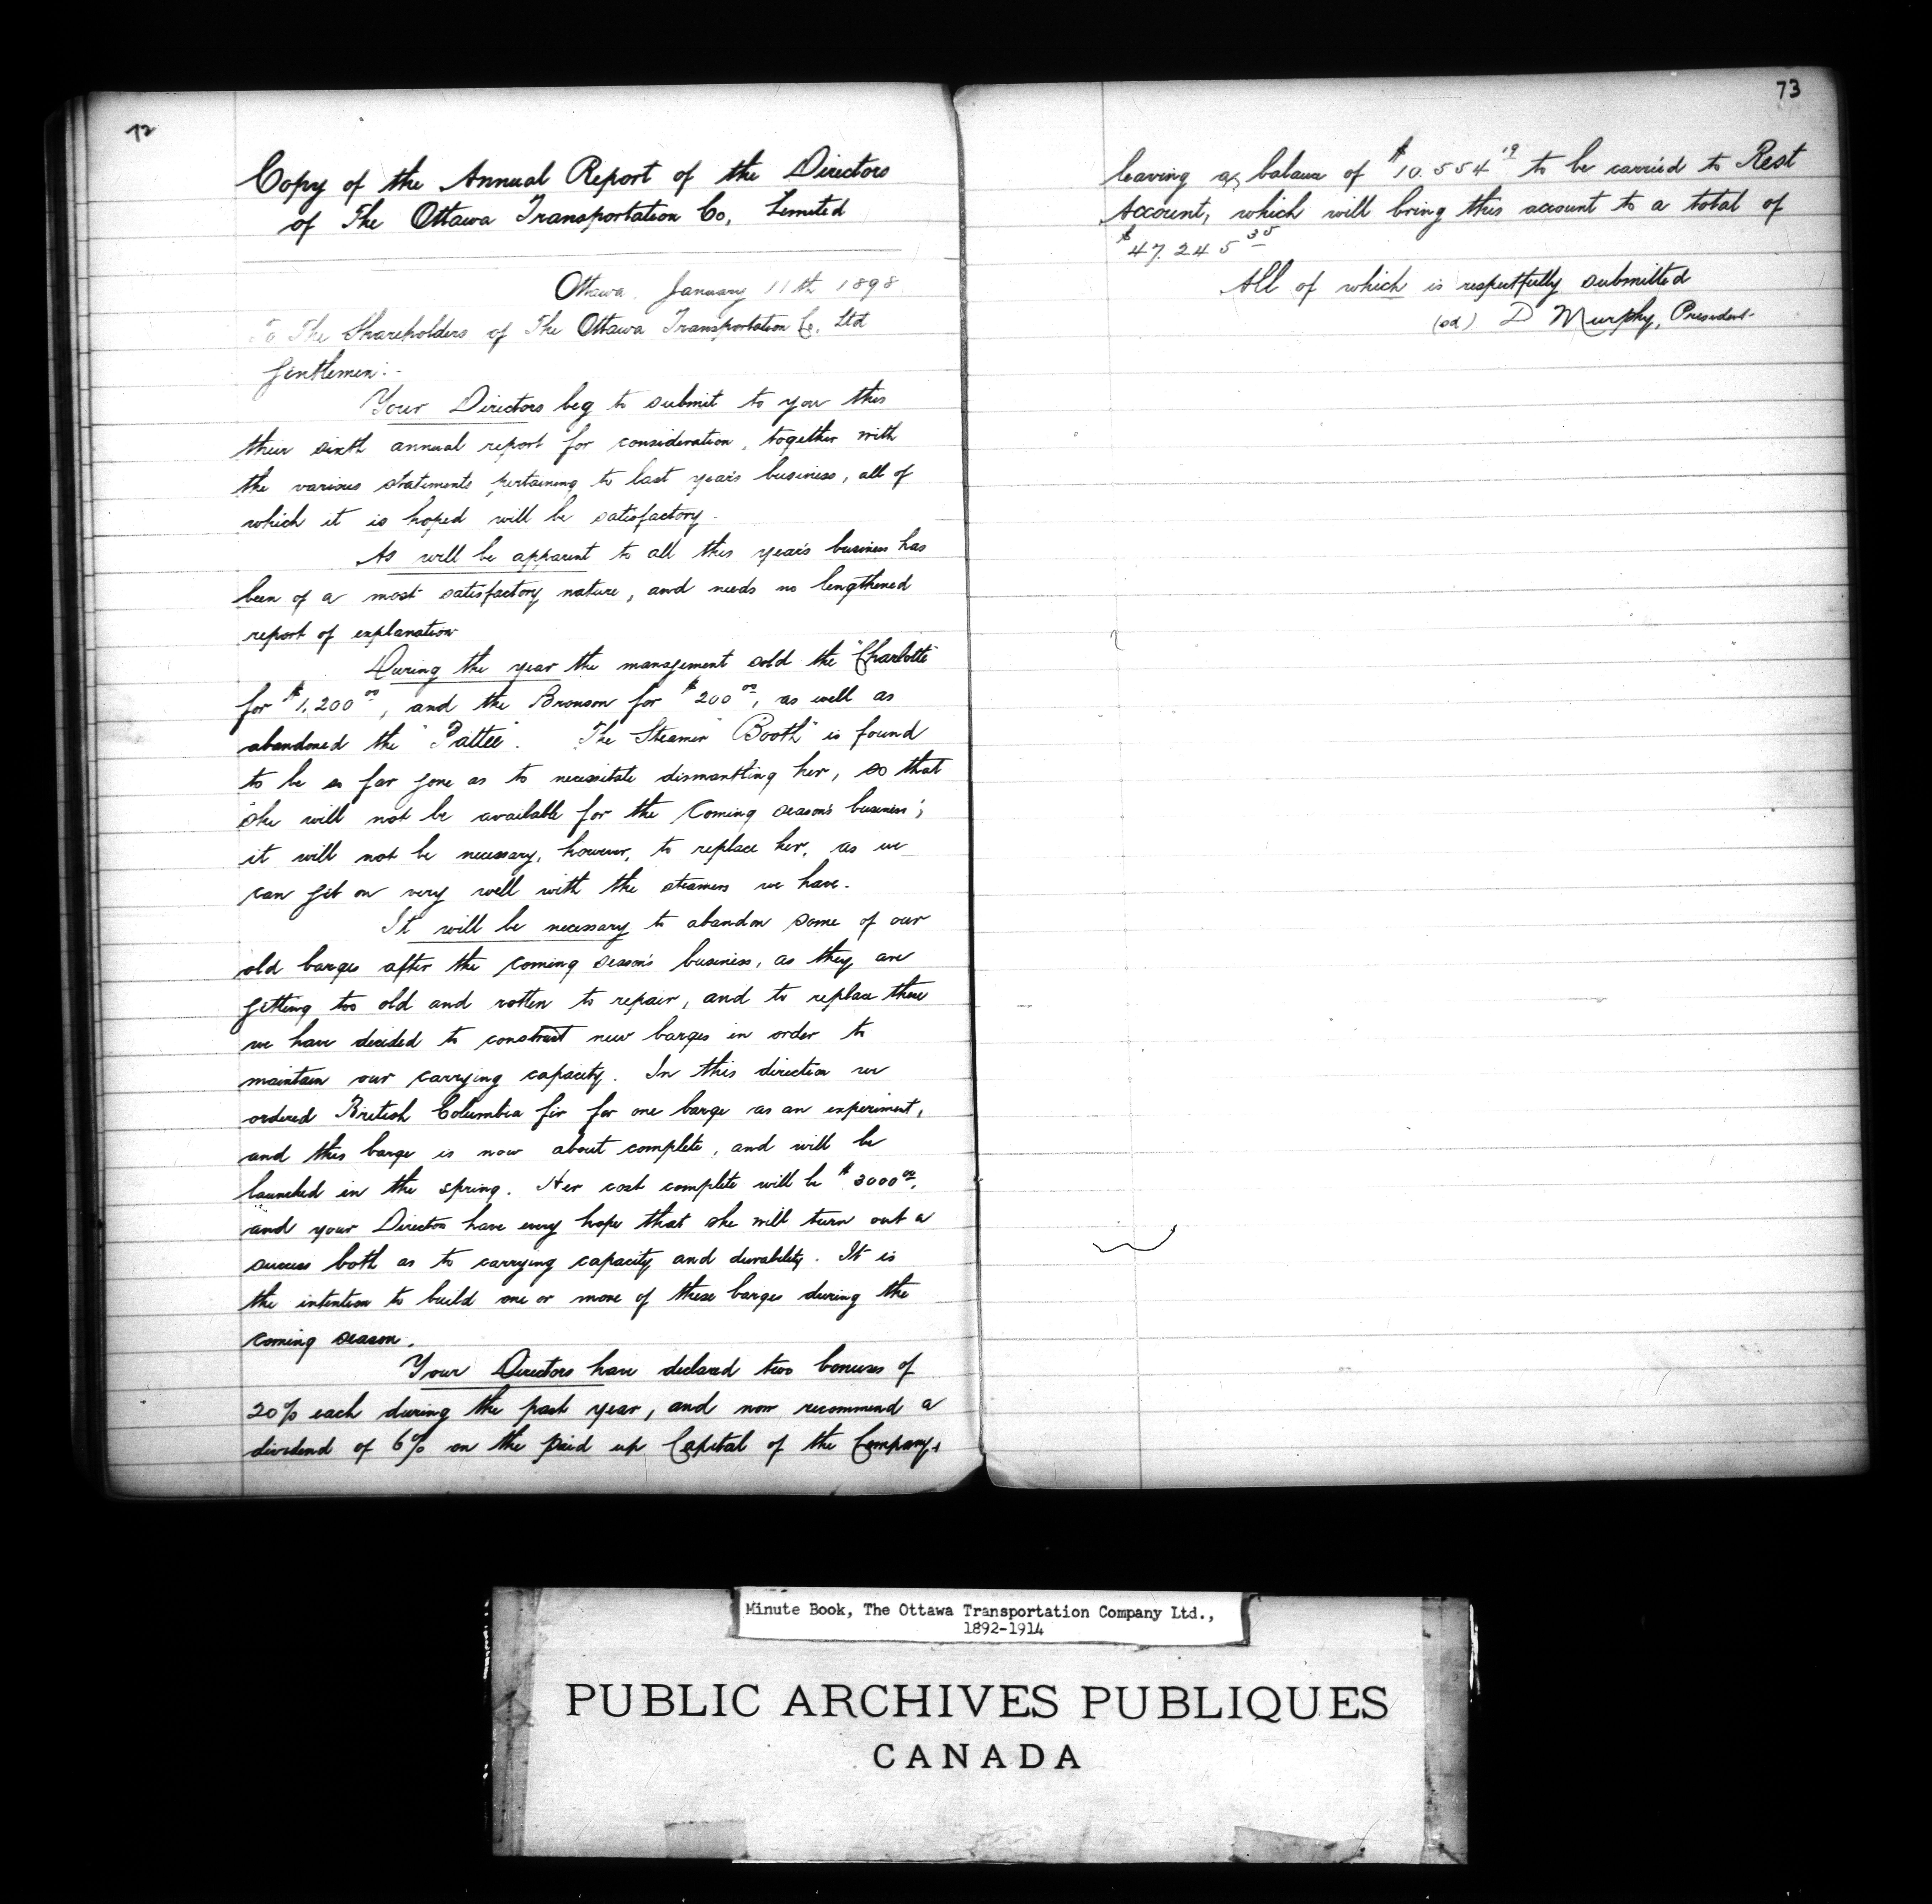 72
Copy of the Annual Report of the Directors
of The Ottawa Transportation Co, Limited
Ottawa, January 11th 1898
To The Shareholders of The Ottawa Transportation Co. Ltd
Gentlemen:-
Your Directors beg to submit to you this
their sixth annual report for consideration, together with
the various statements pertaining to last year's business, all of
which it is hoped will be satisfactory.
As will be apparent to all this year's business has
been of a most satisfactory nature, and needs no lengthened
report of explanation
During the year the management sold the "Charlotte"
for $1,200 00, and the Bronson for $200 00, as well as
abandoned the "Pattee". The Steamer "Booth" is found
to be so far gone as to necessitate dismantling her, so that
she will not be available for the Coming season's business;
it will not be necessary, however, to replace her, as we
can get on very well with the steamers we have.
It will be necessary to abandon some of our
old barges after the coming season's business, as they are
getting too old and rotten to repair, and to replace these
we have decided to construct new barges in order to
maintain our carrying capacity. In this direction we
ordered British Columbia fir for one barge as an experiment,
and this barge is now about complete, and will be
launched in the spring. Her cost complete will be $3000 00,
and your Directors have every hope that she will turn out a
success both as to carrying capacity and durability. It is
the intention to build one or more of these barges during the
coming season.
Your Directors have declared two bonuses of
20% each during the past year, and now recommend a
dividend of 6% on the paid up Capital of the Company,
73
leaving a balance of $10.554 19 to be carried to Rest
Account, which will bring this account to a total of
$47.245 35
All of which is respectfully submitted
(sd) D Murphy, President
Minute Book, The Ottawa Transportation Company Ltd.,
1892-1914
PUBLIC ARCHIVES PUBLIQUES
CANADA